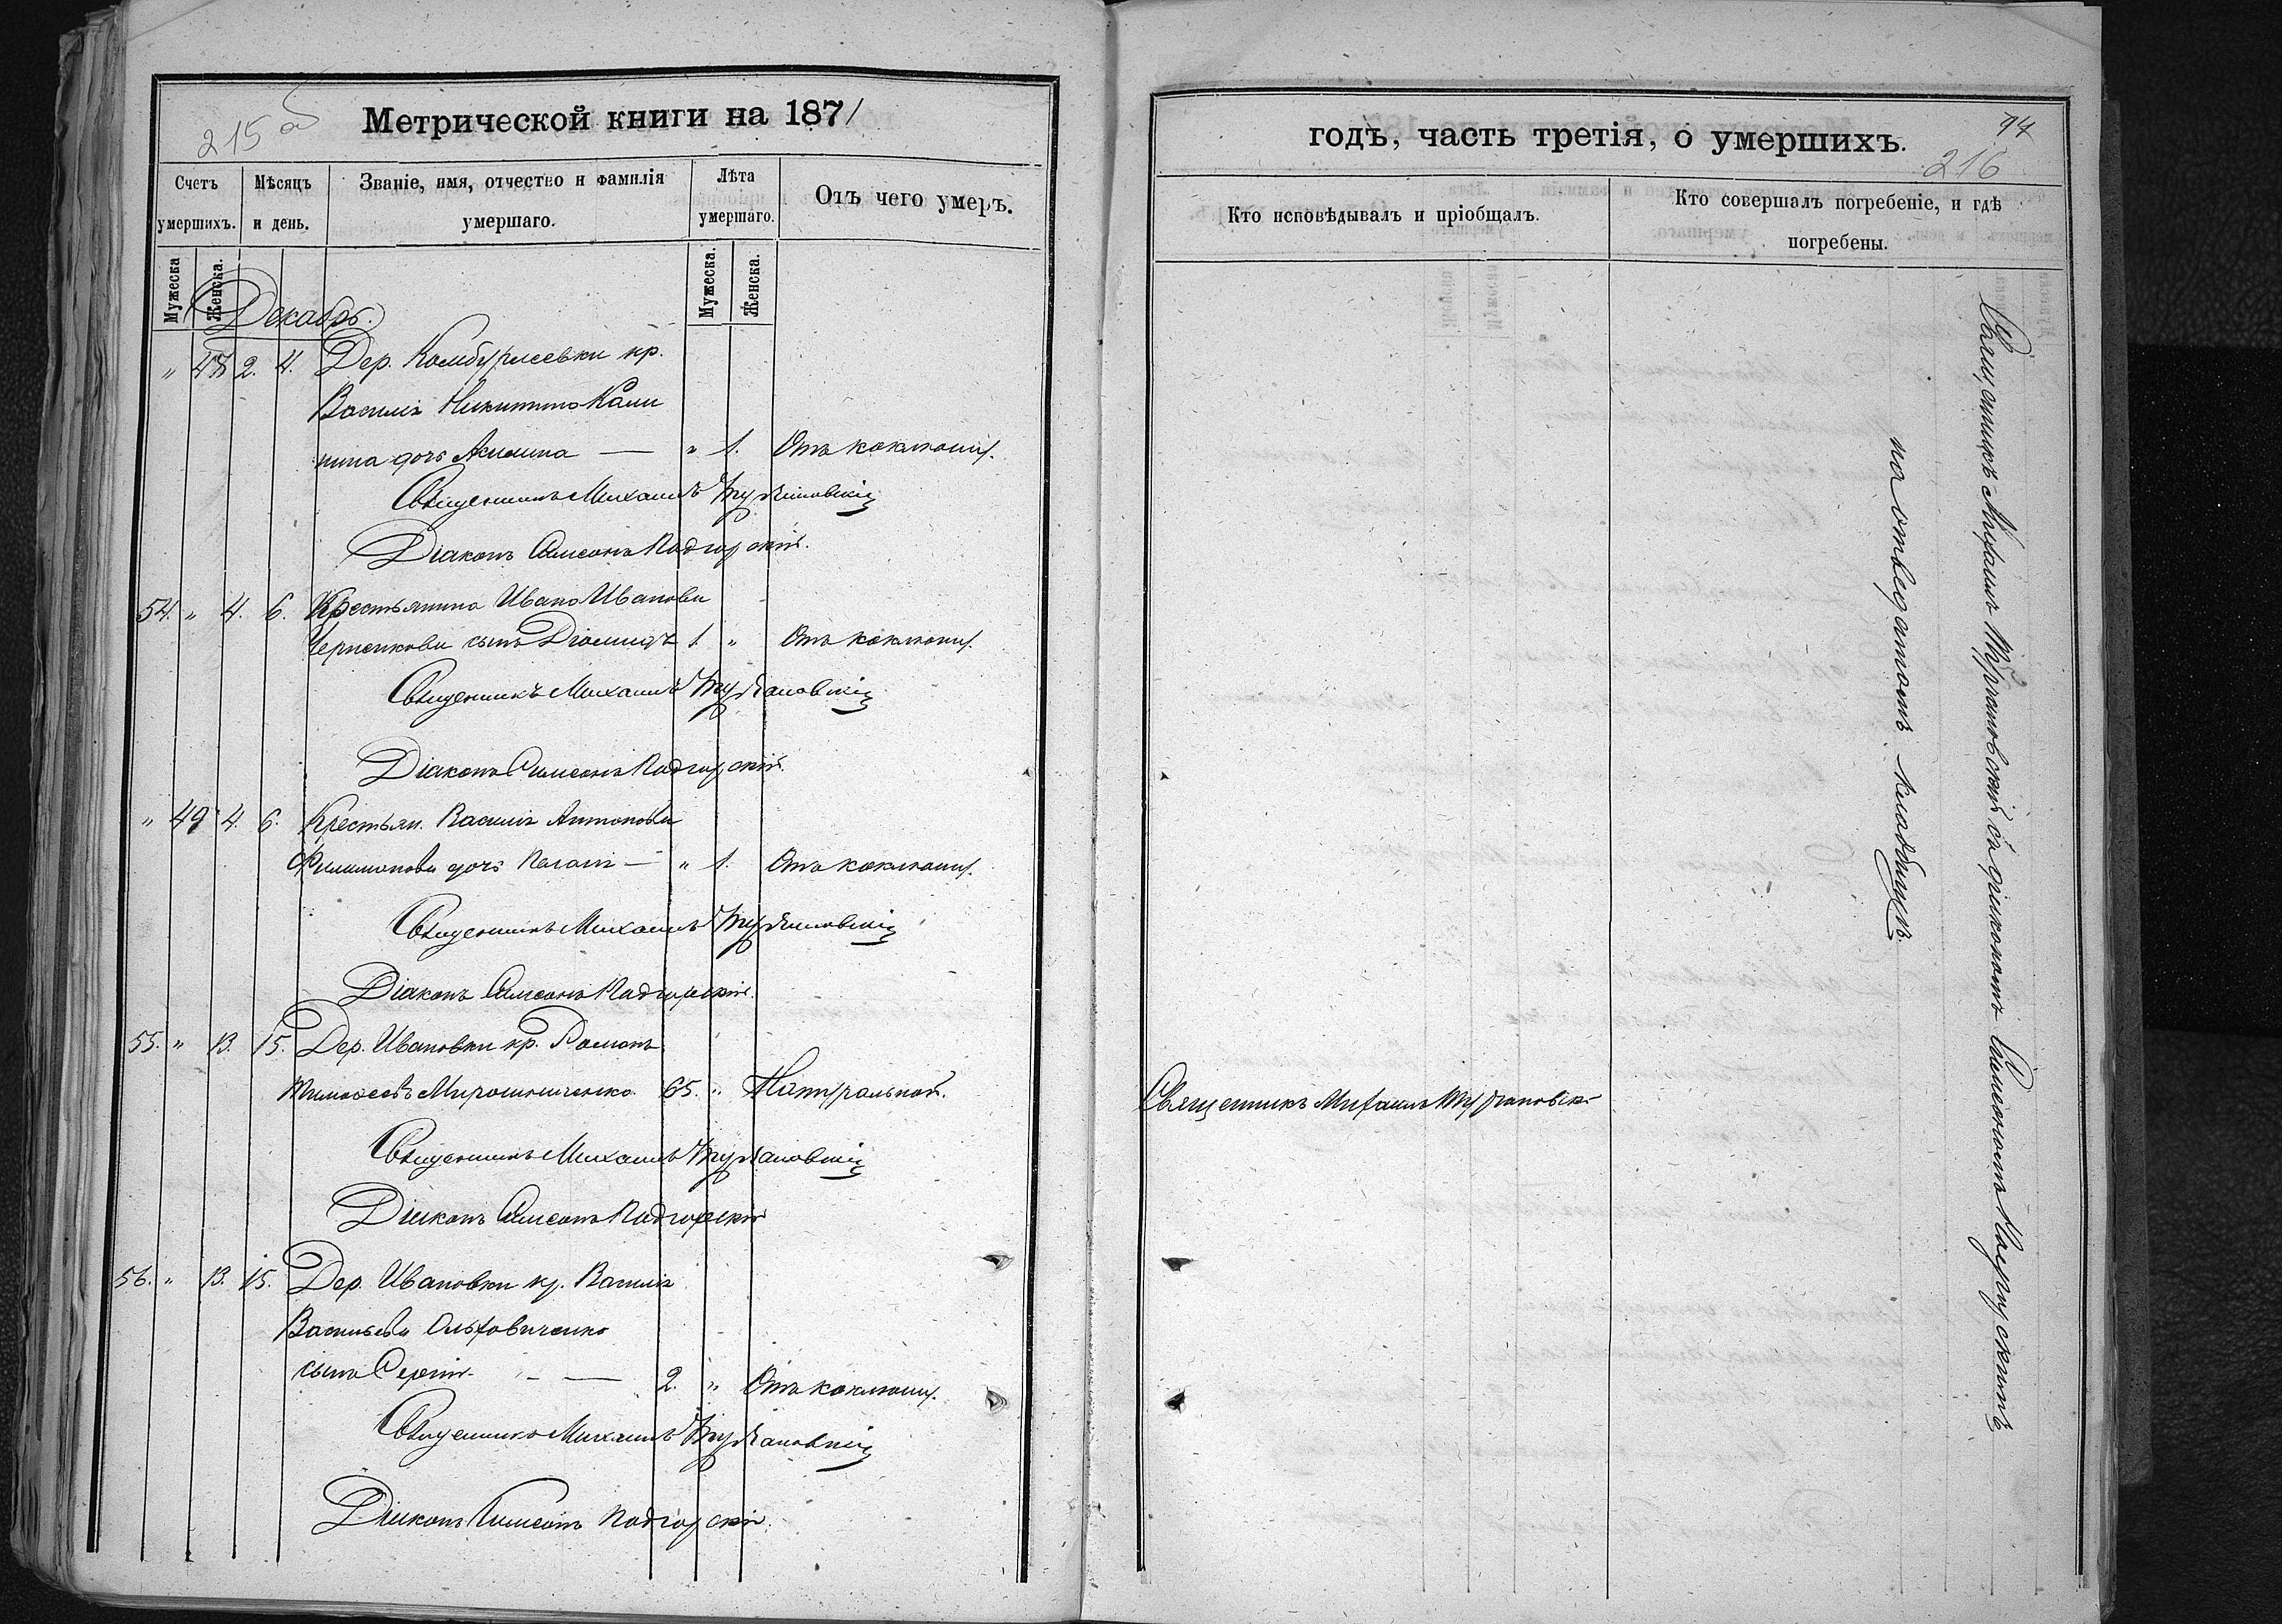 215 об
Метрической книги на 1871
Счетъ умершихъ.
Мѣсяцъ и день.
Званіе, имя, отчество и фамилія умершаго.
Лѣта умершаго.
Отъ чего умеръ.
Мужеска
Женска.
Мужеска.
Женска.
Декабрь.
" 48 2. 4. Дер. Камбурлеевки кр.
Василія Никитина Кали
нина дочь Акилина — " 1. Отъ коклюша.
Священникъ Михаилъ
Діаконъ Симеонъ Подгорскій.
54. " 4. 6. Крестьянина Ивана Иванова
сынъ Діомидъ 1. " Отъ коклюша.
Священникъ Михаилъ
Діаконъ Симеонъ Подгорскій.
" 49 4. 6. Крестьян. Василія Антонова
Филимонова дочь Пелагія — " 1. Отъ коклюша.
Священникъ Михаилъ
Діаконъ Симеонъ Подгорскій.
55. " 13. 15. Дер. Ивановки кр. Романъ
Тимоѳеевъ Мирошниченко 65. " Натуральной.
Священникъ Михаилъ
Діаконъ Симеонъ Подгорскій
56. " 13. 15. Дер. Ивановки кр. Василія
Васильева Ольховиченко
сынъ Сергій — — 2. " Отъ коклюша.
Священникъ Михаилъ
Діаконъ Симеонъ Подгорскій
годъ, часть третія, о умершихъ.
216
Кто исповѣдывалъ и пріобщалъ.
Кто совершалъ погребеніе, и гдѣ погребены.
Священникъ Михаилъ
Священникъ Михаилъ съ діакономъ Симеономъ Подгорскимъ
на отведенномъ кладбищѣ.